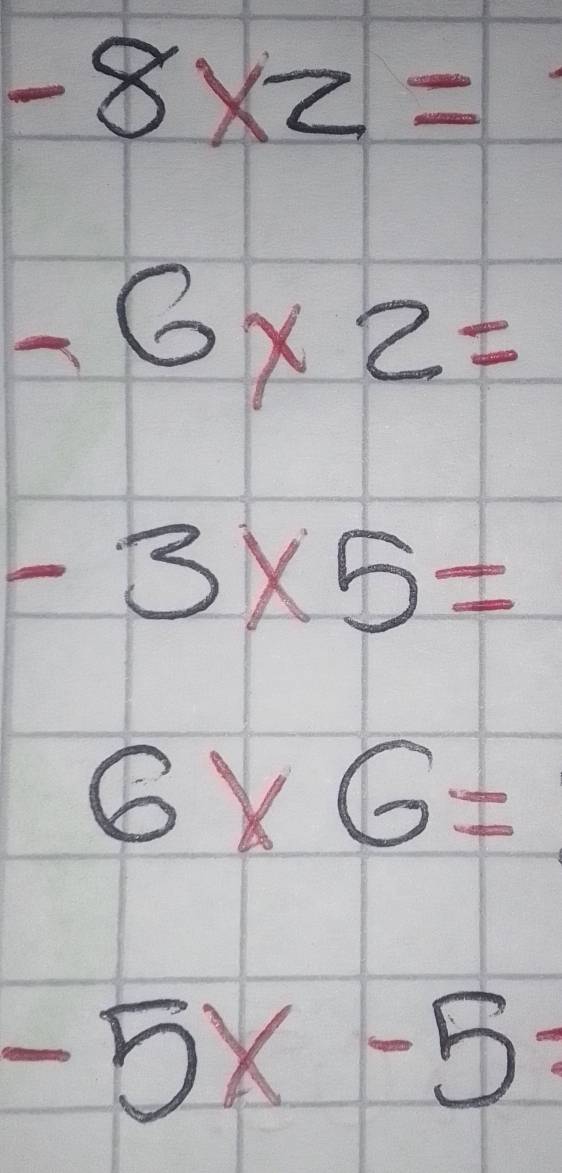 -8x2=
-6x2=
-3x5=
6x6=
-5x-5=